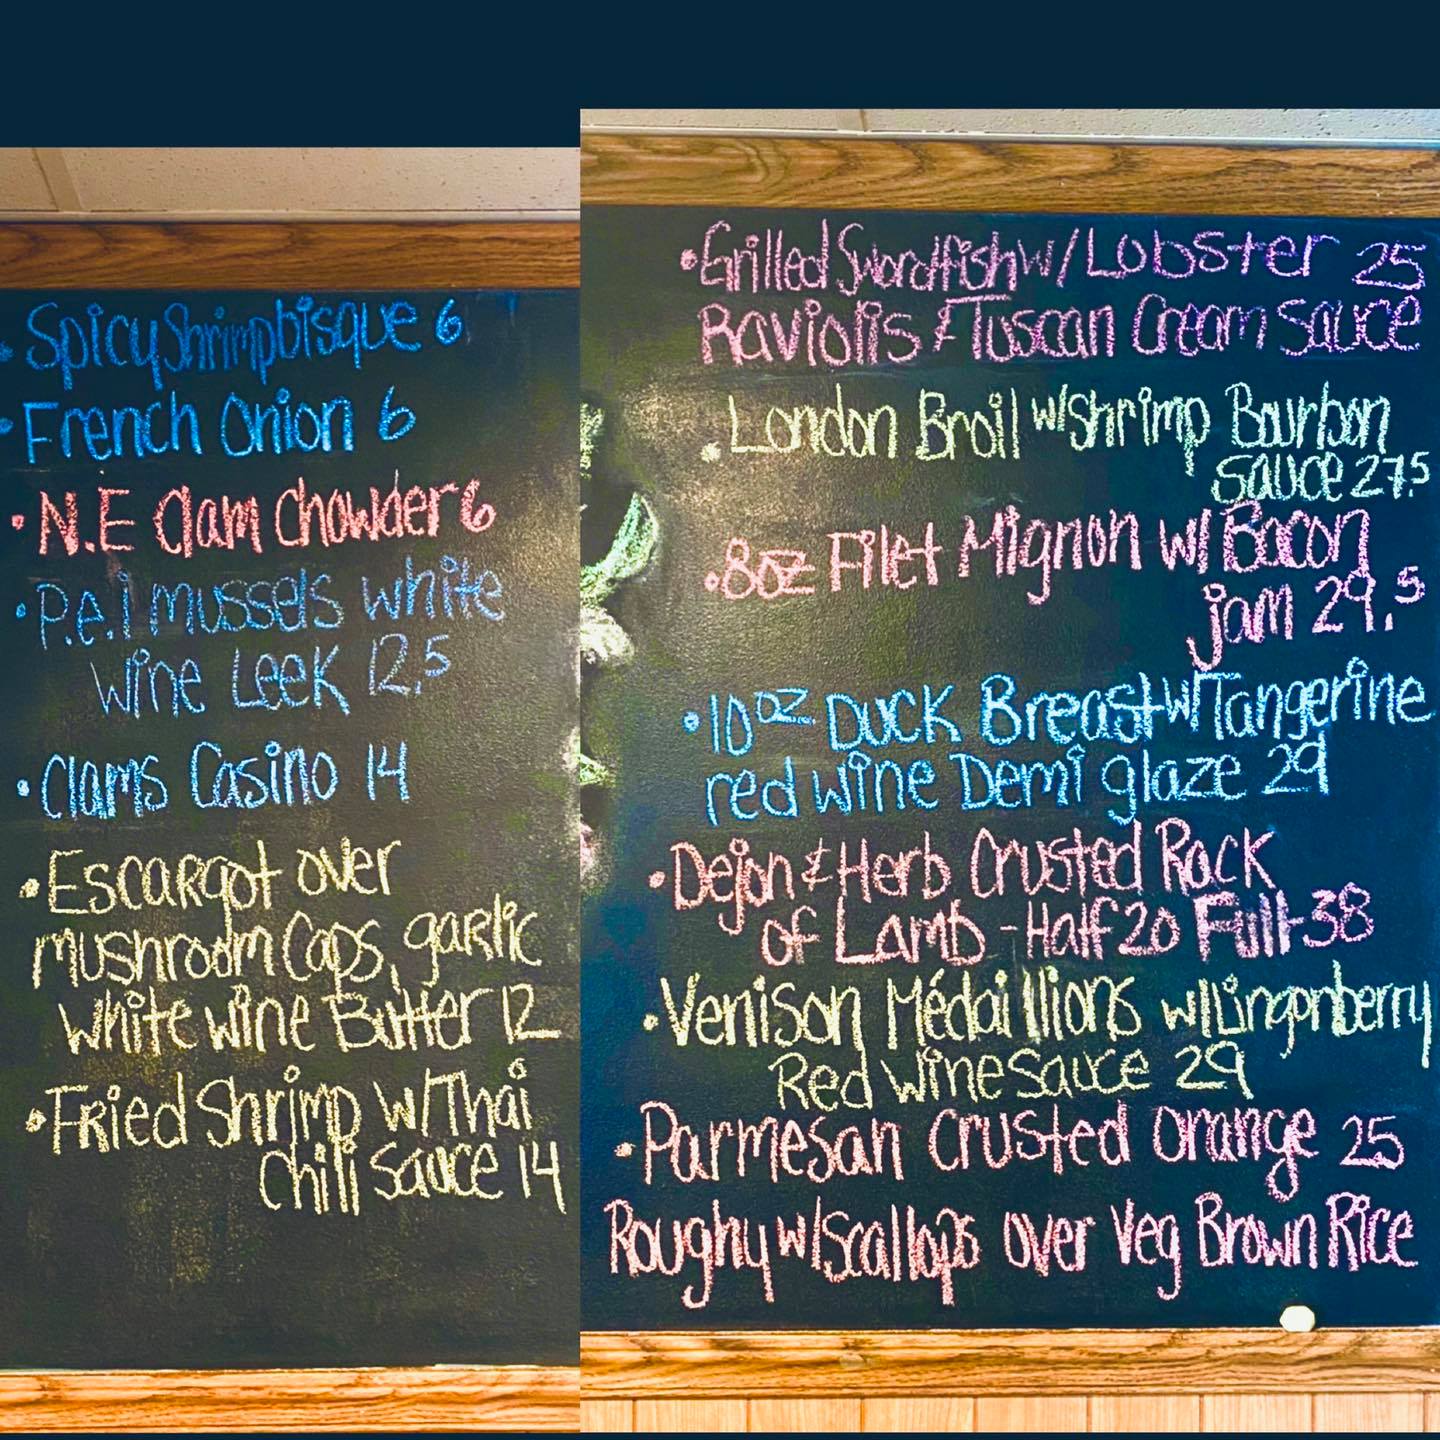 • Spicy Shrimp bisque 6
• French Onion 6
• N.E Clam Chowder 6
• P.e.i mussels white
wine Leek 12.5
• Clams Casino 14
• Escargot over
mushroom Caps, garlic
white wine Butter 12
• Fried Shrimp w/Thai
chili sauce 14
• Grilled Swordfish w/ Lobster 25
Raviolis & Tuscan Cream Sauce
• London Broil w/shrimp Bourbon
sauce 27.5
• 8oz Filet Mignon w/ Bacon
jam 29.5
• 10oz Duck Breast w/Tangerine
red wine Demi glaze 29
• Dejon & Herb Crusted Rack
of Lamb - Half 20 Full-38
• Venison Médaillions w/Lingonberry
Red wine sauce 29
• Parmesan Crusted orange 25
Roughy w/Scallops over Veg Brown Rice